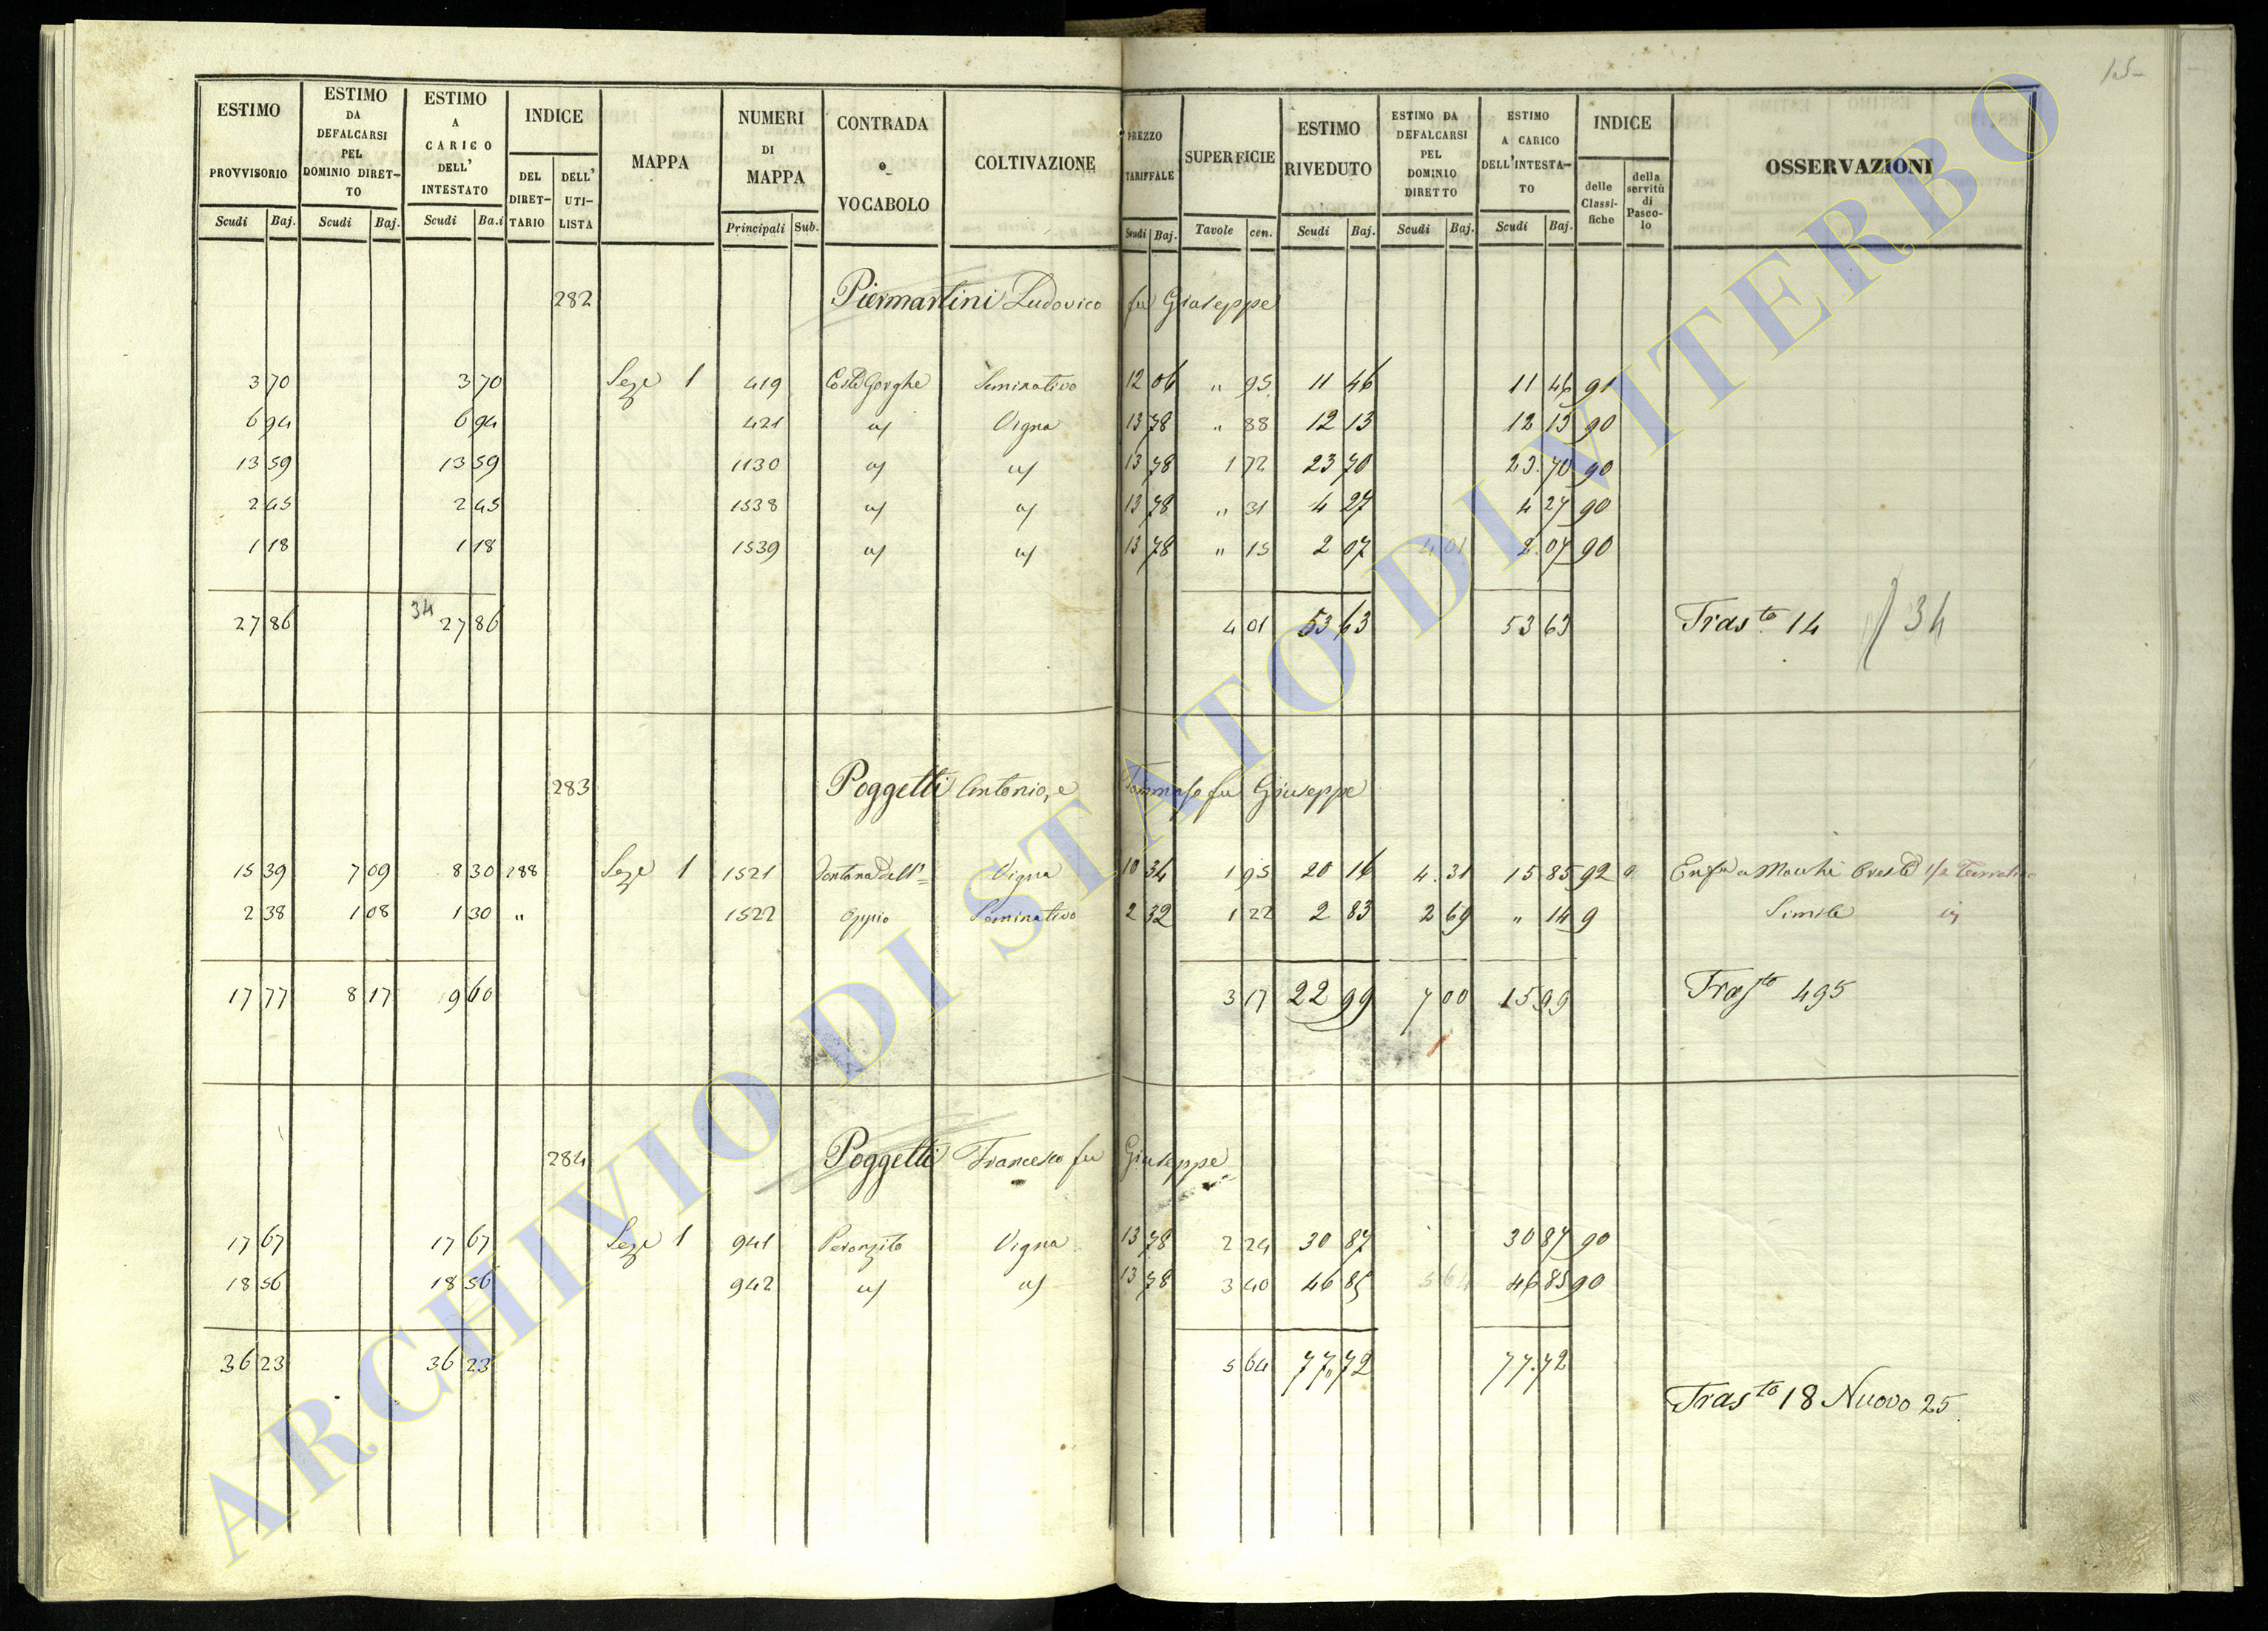 15
ESTIMO PROVVISORIO Scudi Baj.
ESTIMO DA DEFALCARSI PEL DOMINIO DIRETTO Scudi Baj.
ESTIMO A CARICO DELL' INTESTATO Scudi Ba.i
INDICE DEL DIRETTARIO DELL' UTILISTA
MAPPA
NUMERI DI MAPPA Principali Sub.
CONTRADA o VOCABOLO
COLTIVAZIONE
PREZZO TARIFFALE Scudi Baj.
SUPERFICIE Tavole cen.
ESTIMO RIVEDUTO Scudi Baj.
ESTIMO DA DEFALCARSI PEL DOMINIO DIRETTO Scudi Baj.
ESTIMO A CARICO DELL'INTESTATO Scudi Baj.
INDICE delle Classifiche della servitù di Pascolo
OSSERVAZIONI
282 Piermartini Ludovico fu Giuseppe
3 70 3 70 Seze 1 419 Coste Gorghe Seminativo 12 06 " 95 11 46 11 46 91
6 94 6 94 421 a/ Vigna 13 78 " 88 12 13 12 13 90
13 59 13 59 1130 a/ a/ 13 78 1 72 23 70 23.70 90
2 45 2 45 1538 a/ a/ 13 78 " 31 4 27 4 27 90
1 18 1 18 1539 a/ a/ 13 78 " 15 2 07 4 01 2.07 90
27 86 34 27 86 4 01 53 63 53 63 Tras.to 14 34
283 Poggetti Antonio, e Tommaso fu Giuseppe
15 39 7 09 8 30 288 Seze 1 1521 Fontana dell'= Vigna 10 34 1 95 20 16 4.31 15 85 92
2 38 1 08 1 30 " 1522 Oppio Seminativo 2 32 1 22 2 83 2 69 " 14 9 Simile
17 77 8 17 9 60 3 17 22 99 7 00 15 99 Tras.to 495
284 Poggetti Francesco fu Giuseppe
17 67 17 67 Seze 1 941 Vigna 13 78 2 24 30 87 30 87 90
18 56 18 56 942 a/ a/ 13 78 3 40 46 85 5 64 46 85 90
36 23 36 23 5 64 77 72 77.72
Tras.to 18 Nuovo 25.
ARCHIVIO DI STATO DI VITERBO